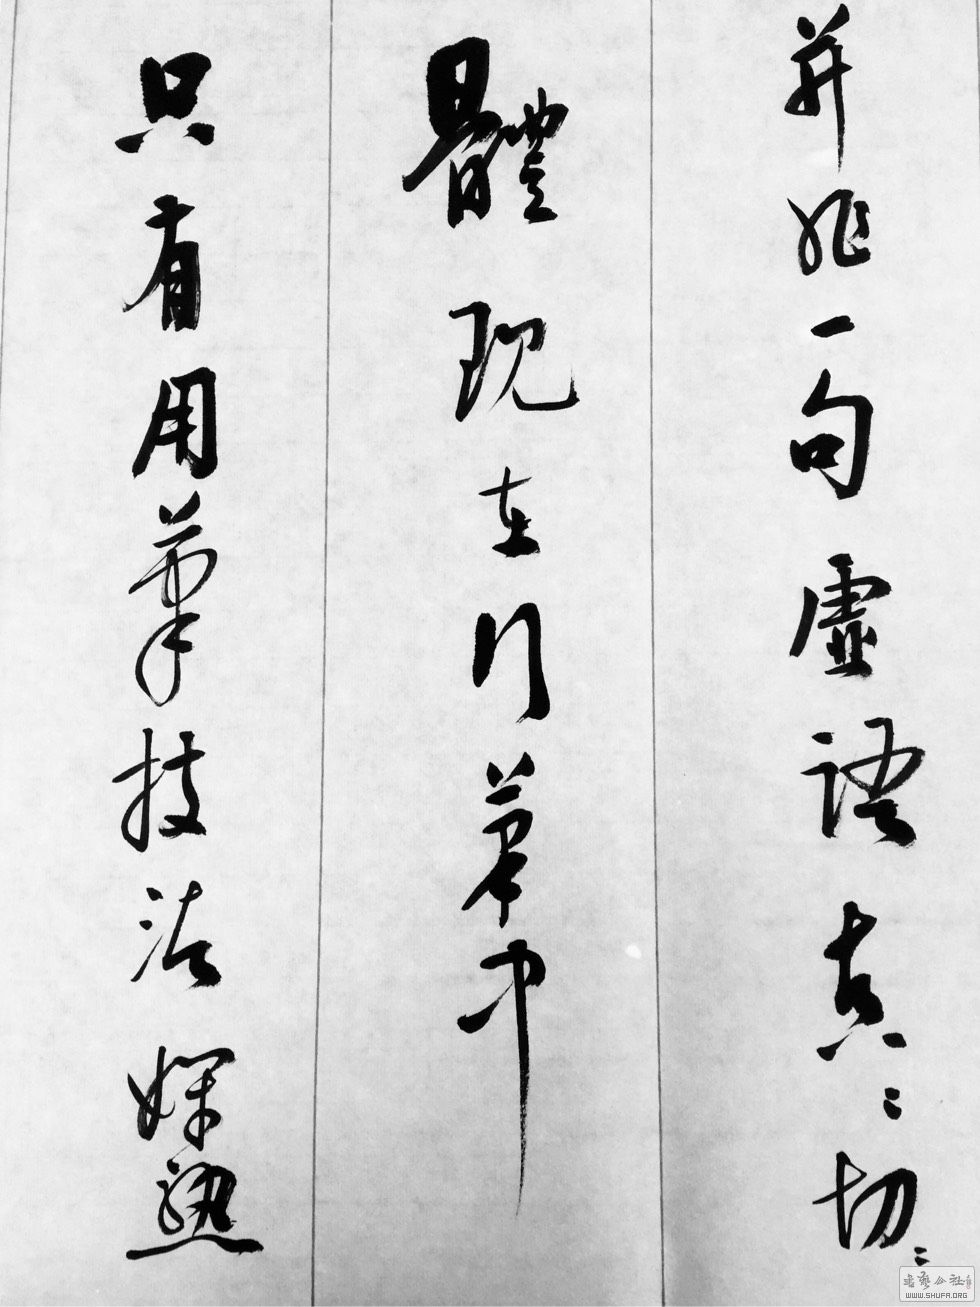 并非一句虛語真〻切〻
體現在行筆中
只有用筆技法嫻熟
書藝公社
WWW.SHUFA.ORG